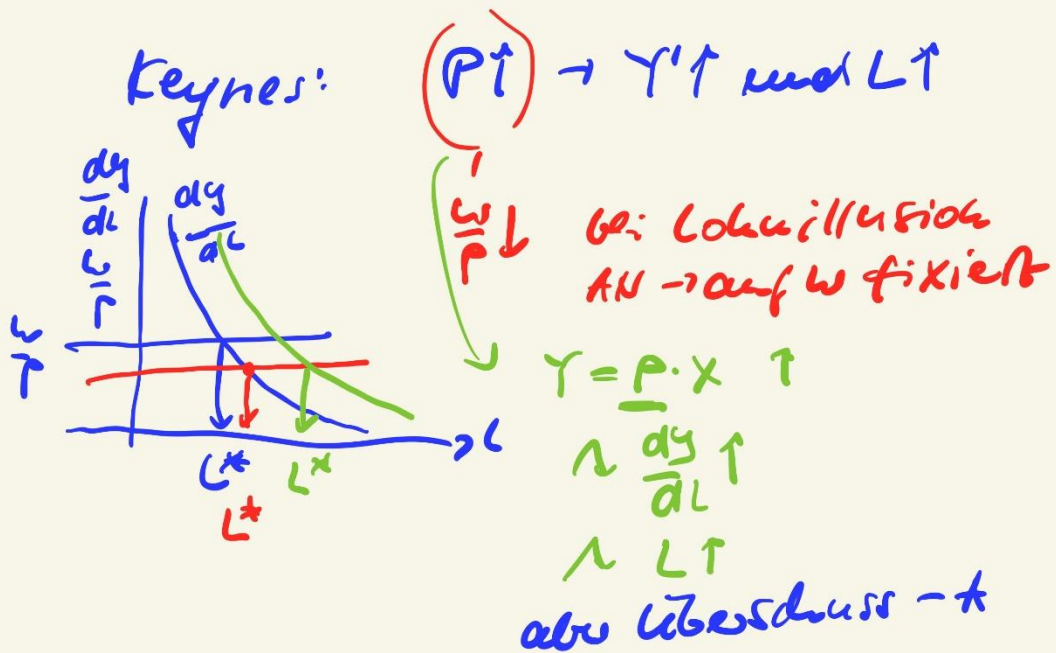 Keynes: (P↑) → Y↑ und L↑
dy/dL
w/p
dy/dL
w/p
w/p ↓ bei Lohnillusion
AN → auf w fixiert
Y = P · X ↑
∧ dy/dL ↑
∧ L ↑
L
L* L*
L*
aber Überschuss - A